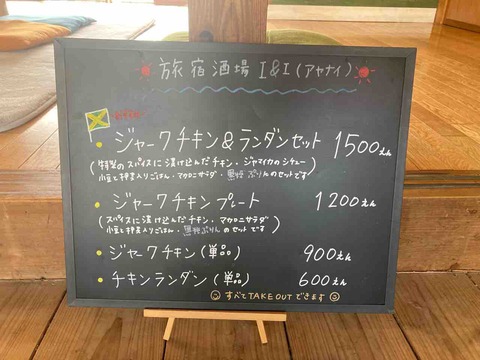 旅宿酒場 I&I (アヤナイ)
おすすめ
・ジャークチキン&ランダンセット 1500えん
(特製のスパイスに漬け込んだチキン・ジャマイカのシチュー
小豆と押麦入りごはん・マカロニサラダ・黒糖ぷりんのセットです)
・ジャークチキンプレート 1200えん
(スパイスに漬け込んだチキン・マカロニサラダ
小豆と押麦入りごはん・黒糖ぷりんのセットです)
・ジャークチキン(単品) 900えん
・チキンランダン(単品) 600えん
すべてTAKE OUTできます